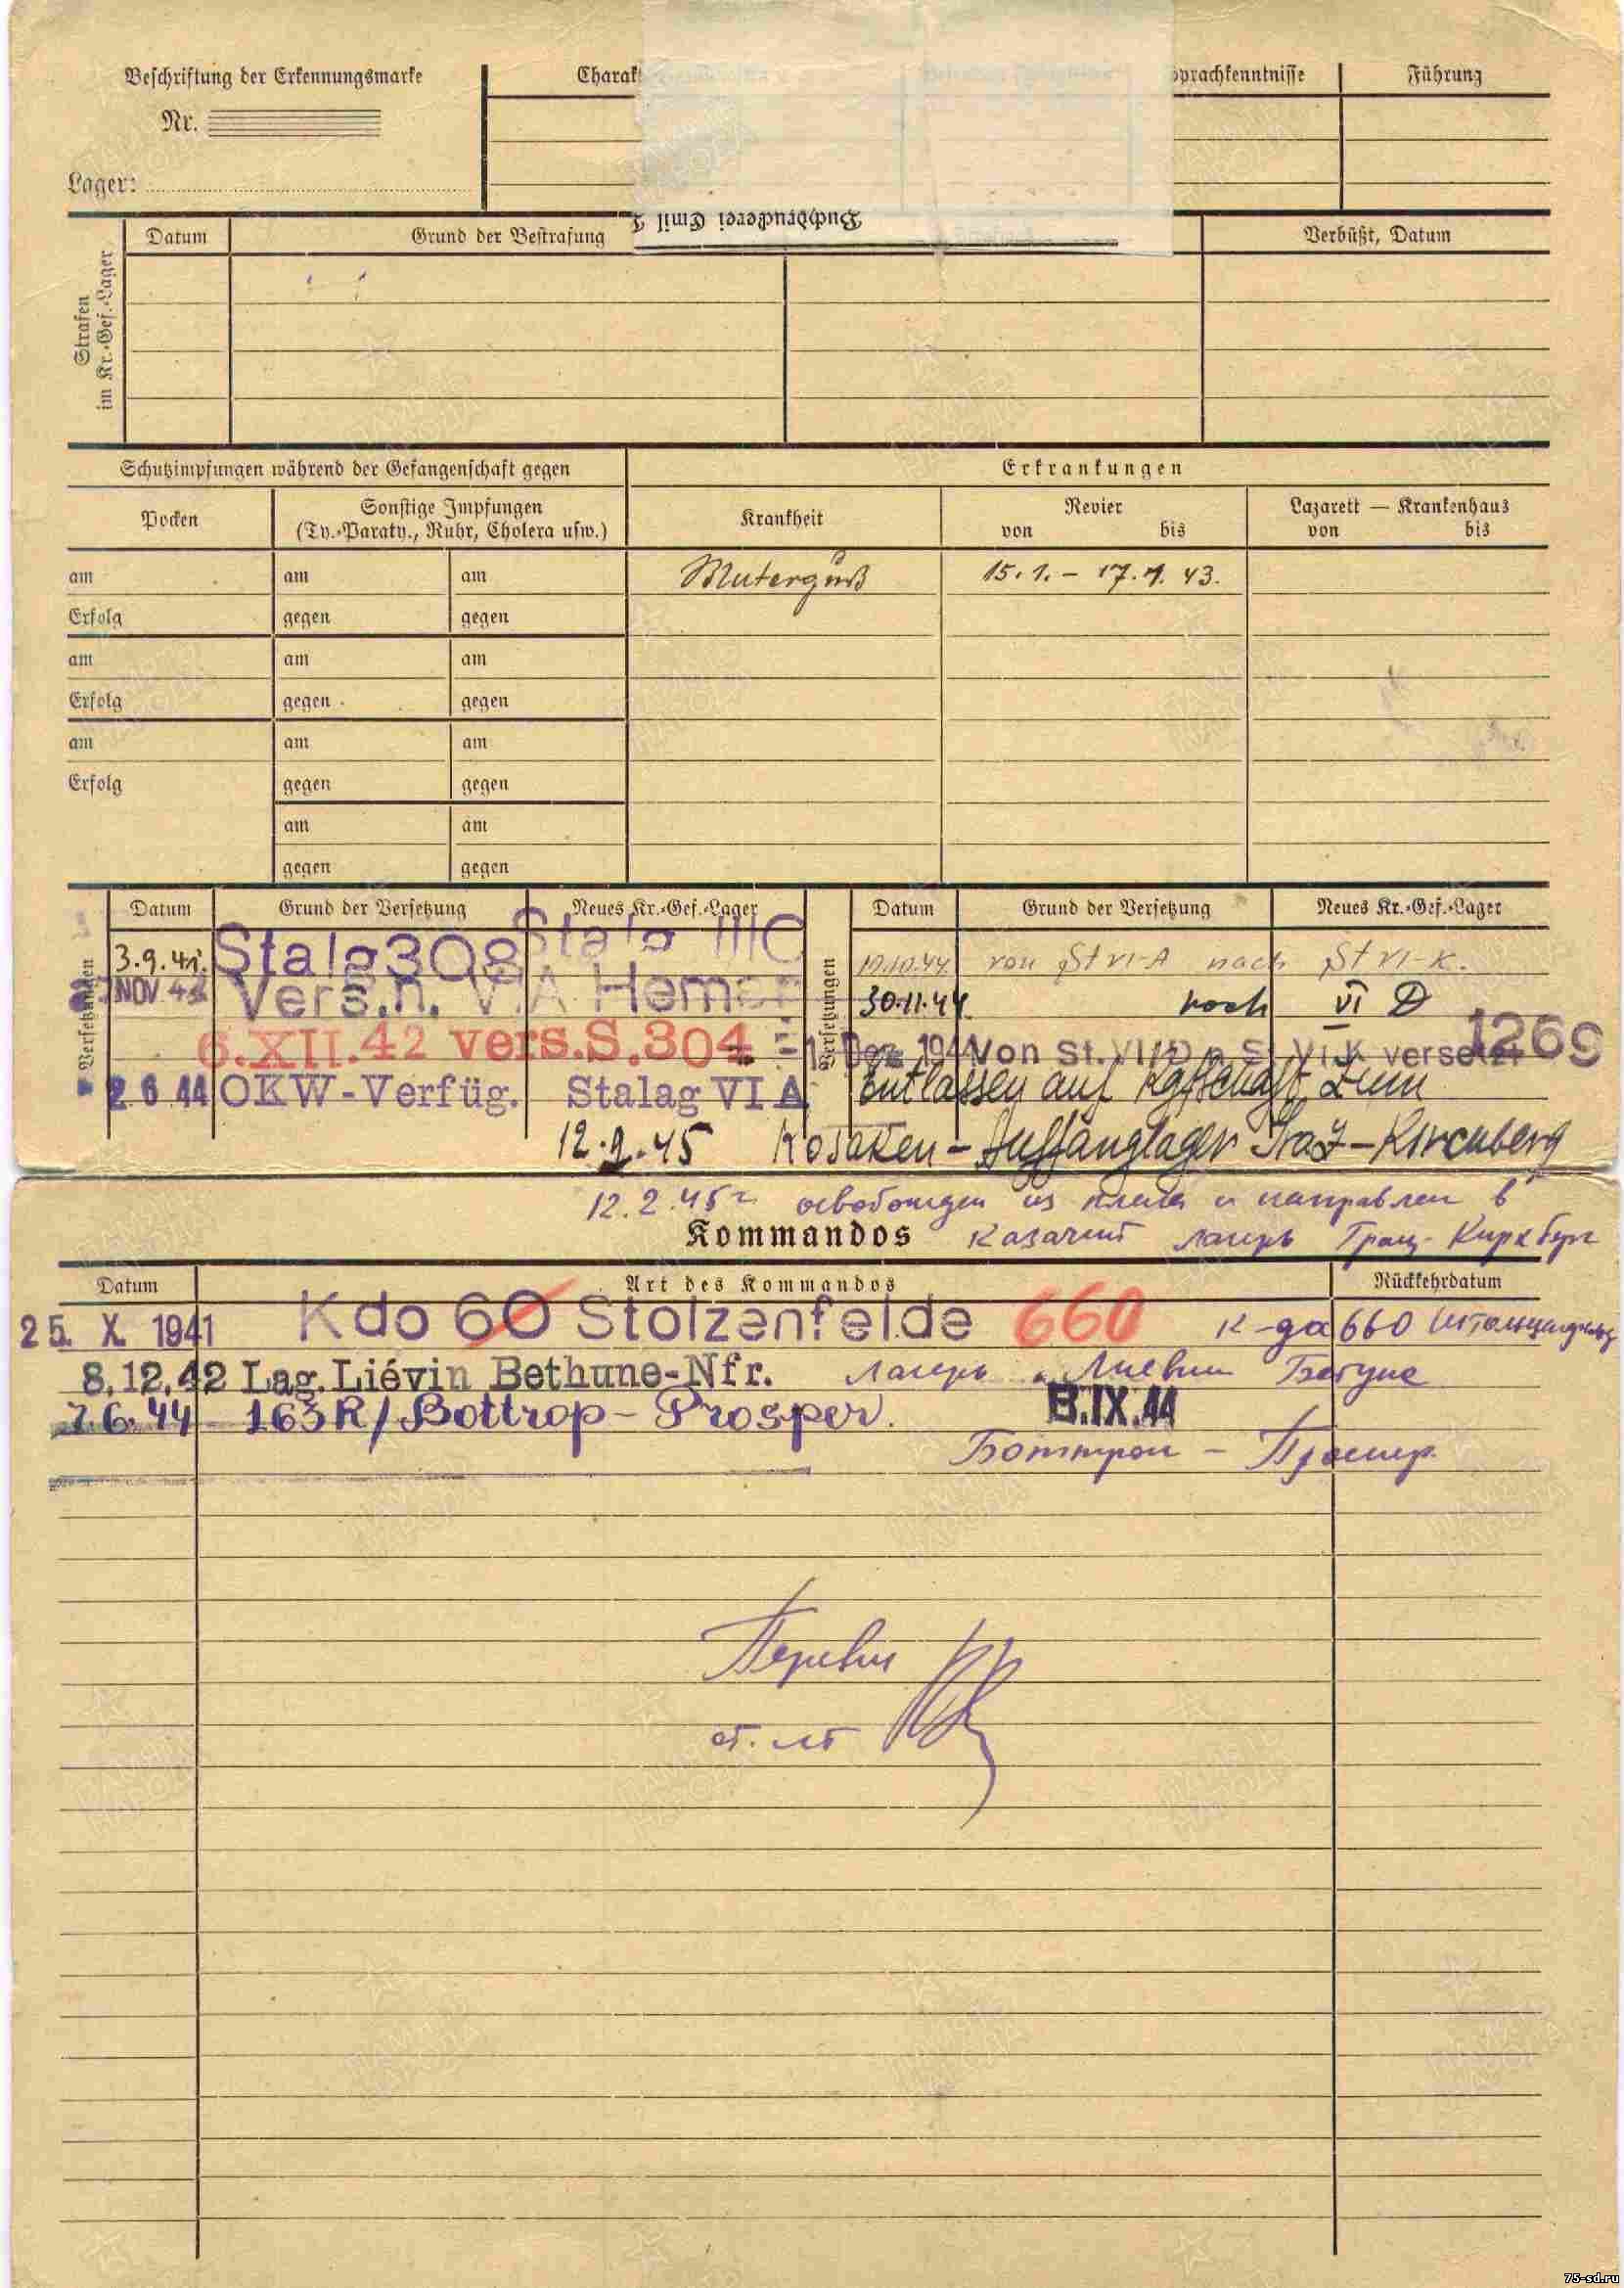 Beschriftung der Erkennungsmarke
Nr.
Lager:
Charak
Sprachkenntnisse
Führung
Buchdruckerei Emil
Strafen
im Kr.-Gef.-Lager
Datum
Grund der Bestrafung
Verbüßt, Datum
Schutzimpfungen während der Gefangenschaft gegen
Erkrankungen
Pocken
Sonstige Impfungen
(Ty.-Paraty., Ruhr, Cholera usw.)
Krankheit
Revier
von bis
Lazarett — Krankenhaus
von bis
am am am
Bluterguß 15.1. – 17.1.43.
Erfolg gegen gegen
am am am
Erfolg gegen gegen
am am am
Erfolg gegen gegen
am am
gegen gegen
Versetzungen
Datum Grund der Versetzung Neues Kr.-Gef.-Lager
3.9.41. Stalag 308 Stalag IIIC
NOV 42 Vers.n. VIA Hemer
6.XII.42 vers.S.304
2 6 44 OKW-Verfüg. Stalag VI A
Versetzungen
Datum Grund der Versetzung Neues Kr.-Gef.-Lager
10.10.44 von St VI-A nach St VI-K.
30.11.44 nach VI D
Dez. 1944 Von St. VI D n. St. VI K versetzt
1269
Entlassen aus Kgfschaft zum
12.2.45 Kosaken-Auffanglager Graz-Kirchberg
12.2.45г освобожден из плена и направлен в
Казачий лагерь Грац-Кирхберг
Kommandos
Datum Art des Kommandos Rückkehrdatum
25. X. 1941 Kdo 60 Stolzenfelde 660 к-да 660 Штольценфельд
8.12.42 Lag. Liévin Bethune-Nfr. лагерь Лиевин Бетуне
7.6.44 163R/Bottrop-Prosper. B.IX.44
Боттроп – Проспер.
Перевел
ст. лт
75-sd.ru